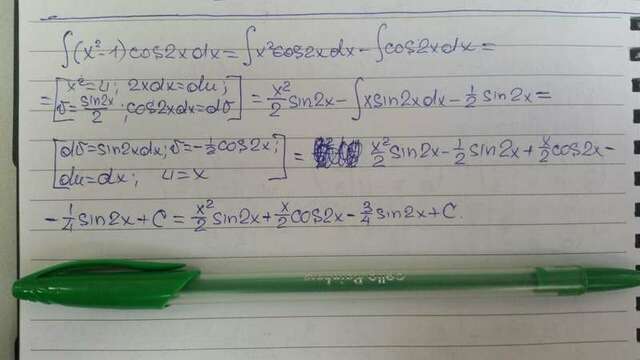 ∫(x²-1)cos2xdx=∫x²cos2xdx-∫cos2xdx=
=[x²=u; 2xdx=du; v=sin2x/2; cos2xdx=dv]=x²/2 sin2x-∫xsin2xdx-1/2 sin2x=
[dv=sin2xdx; v=-1/2cos2x; du=dx; u=x]= x²/2 sin2x-1/2 sin2x+x/2 cos2x-
-1/4 sin2x+C=x²/2 sin2x+x/2 cos2x-3/4 sin2x+C.